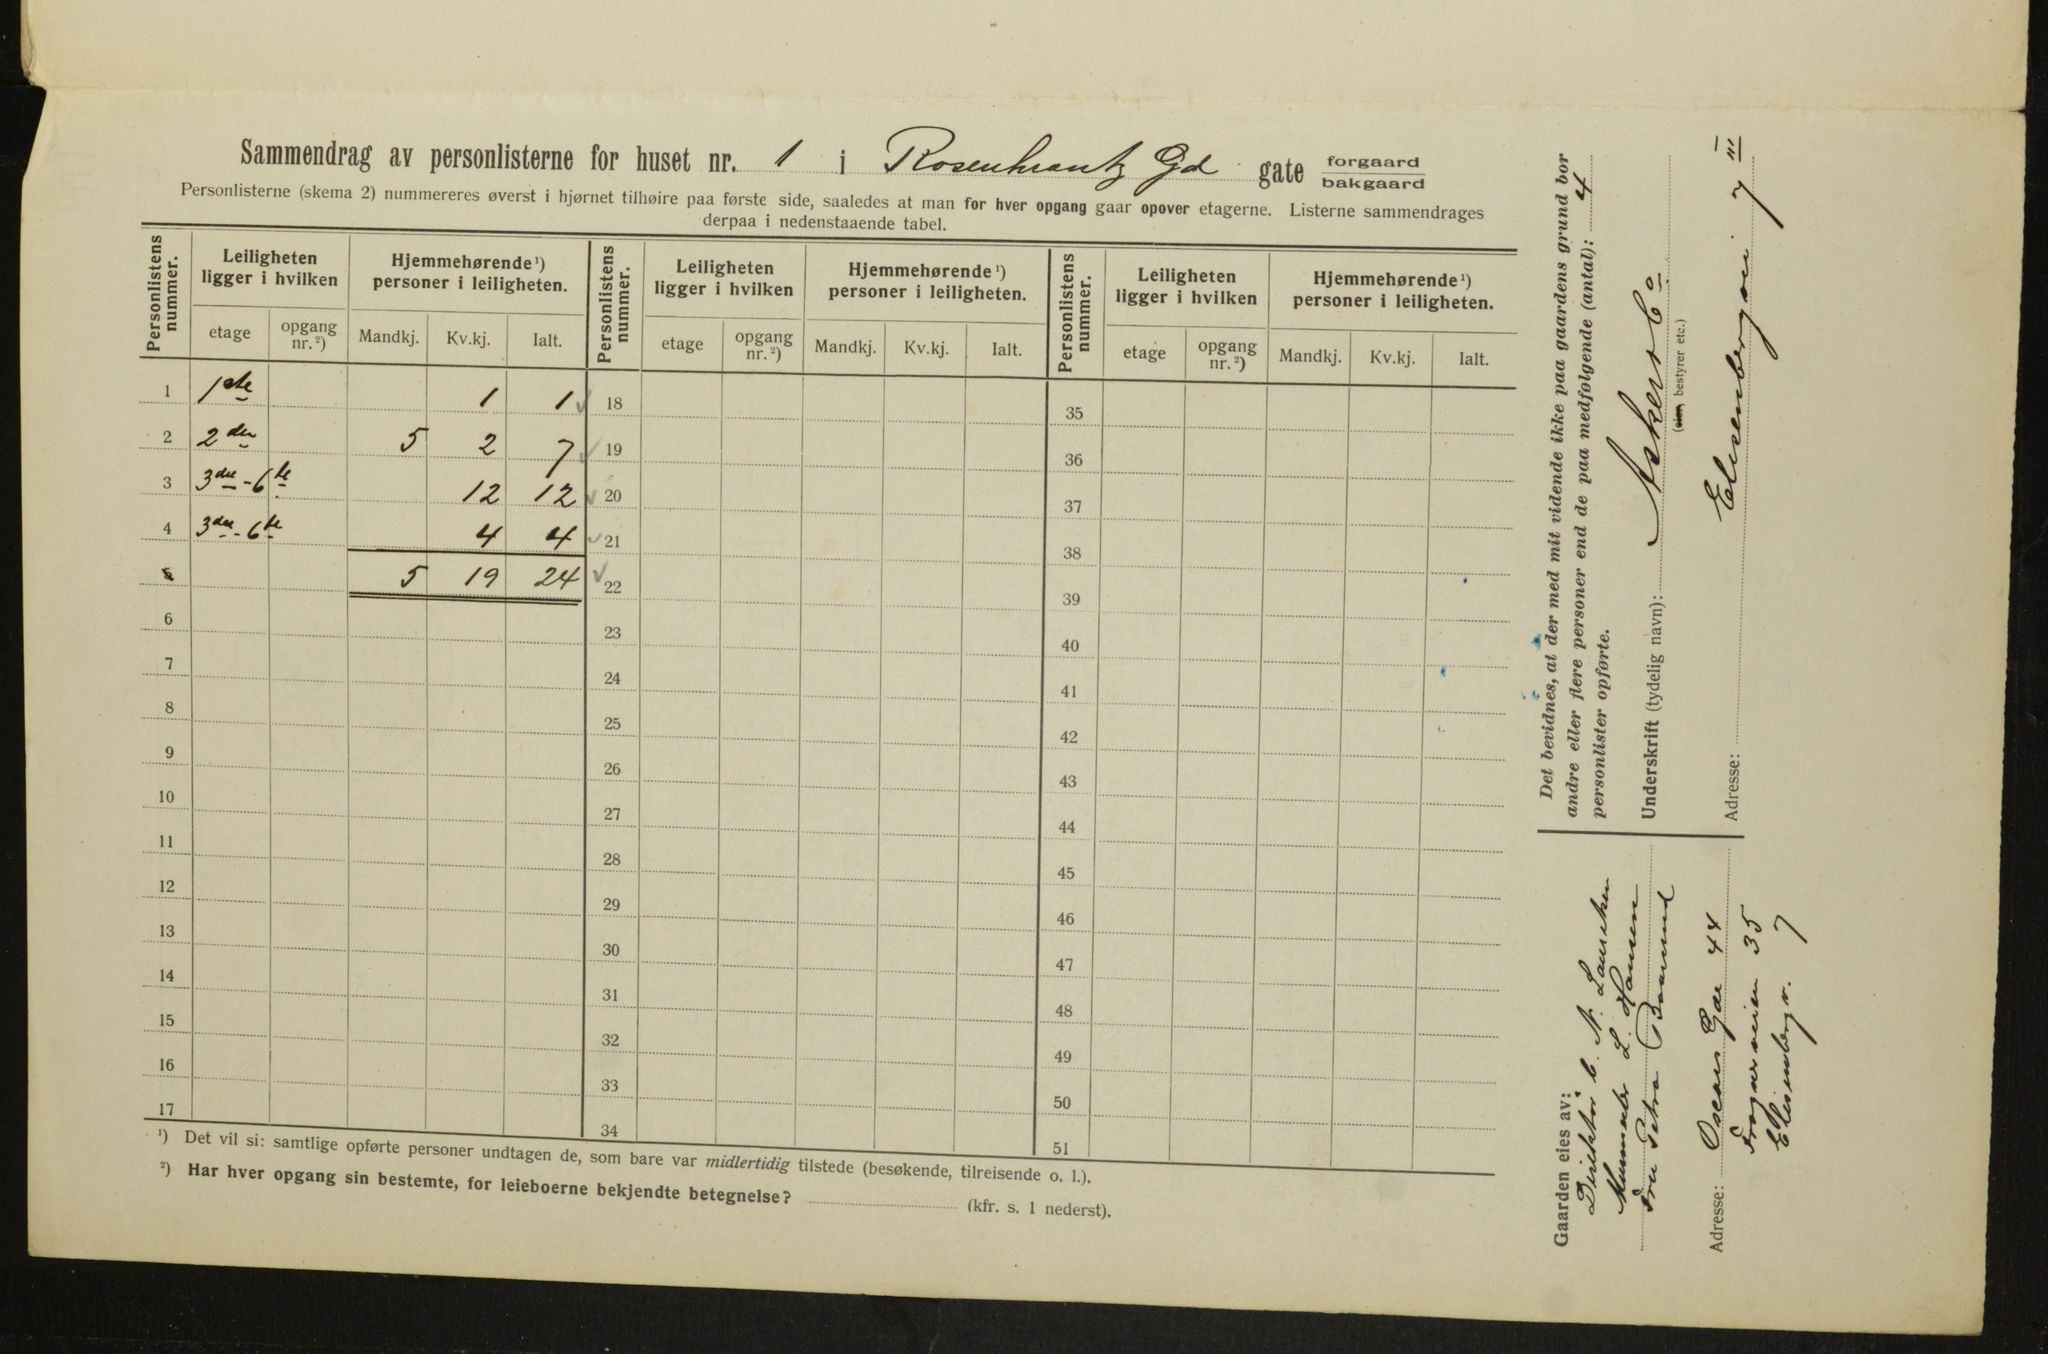 Sammendrag av personlisterne for huset nr. 1 i Rosenkrantz Gd gate forgaard
bakgaard
Personlisterne (skema 2) nummereres øverst i hjørnet tilhøire paa første side, saaledes at man for hver opgang gaar opover etagerne. Listerne sammendrages
derpaa i nedenstaaende tabel.
Personlistens nummer. Leiligheten ligger i hvilken Hjemmehørende ¹) personer i leiligheten. Personlistens nummer. Leiligheten ligger i hvilken Hjemmehørende ¹) personer i leiligheten. Personlistens nummer. Leiligheten ligger i hvilken Hjemmehørende ¹) personer i leiligheten.
etage opgang nr. ²) Mandkj. Kv.kj. Ialt. etage opgang nr. ²) Mandkj. Kv.kj. Ialt. etage opgang nr. ²) Mandkj. Kv.kj. Ialt.
1 1ste 1 1 18 35
2 2den 5 2 7 19 36
3 3die - 6te 12 12 20 37
4 3die - 6te 4 4 21 38
5 5 19 24 22 39
6 23 40
7 24 41
8 25 42
9 26 43
10 27 44
11 28 45
12 29 46
13 30 47
14 31 48
15 32 49
16 33 50
17 34 51
¹) Det vil si: samtlige opførte personer undtagen de, som bare var midlertidig tilstede (besøkende, tilreisende o. l.).
²) Har hver opgang sin bestemte, for leieboerne bekjendte betegnelse? (kfr. s. 1 nederst).
Det bevidnes, at der med mit vidende ikke paa gaardens grund bor
andre eller flere personer end de paa medfølgende (antal): 4
personlister opførte.
Underskrift (tydelig navn): Asker & Co
(eier, bestyrer etc.)
Adresse: Elisenbergvei 7 III
Gaarden eies av:
Direktør C. N. Lauritzen
L. Hansen
Fru Petra
Adresse: Oscars Gde 44
Frognerveien 35
Elisenberg v. 7